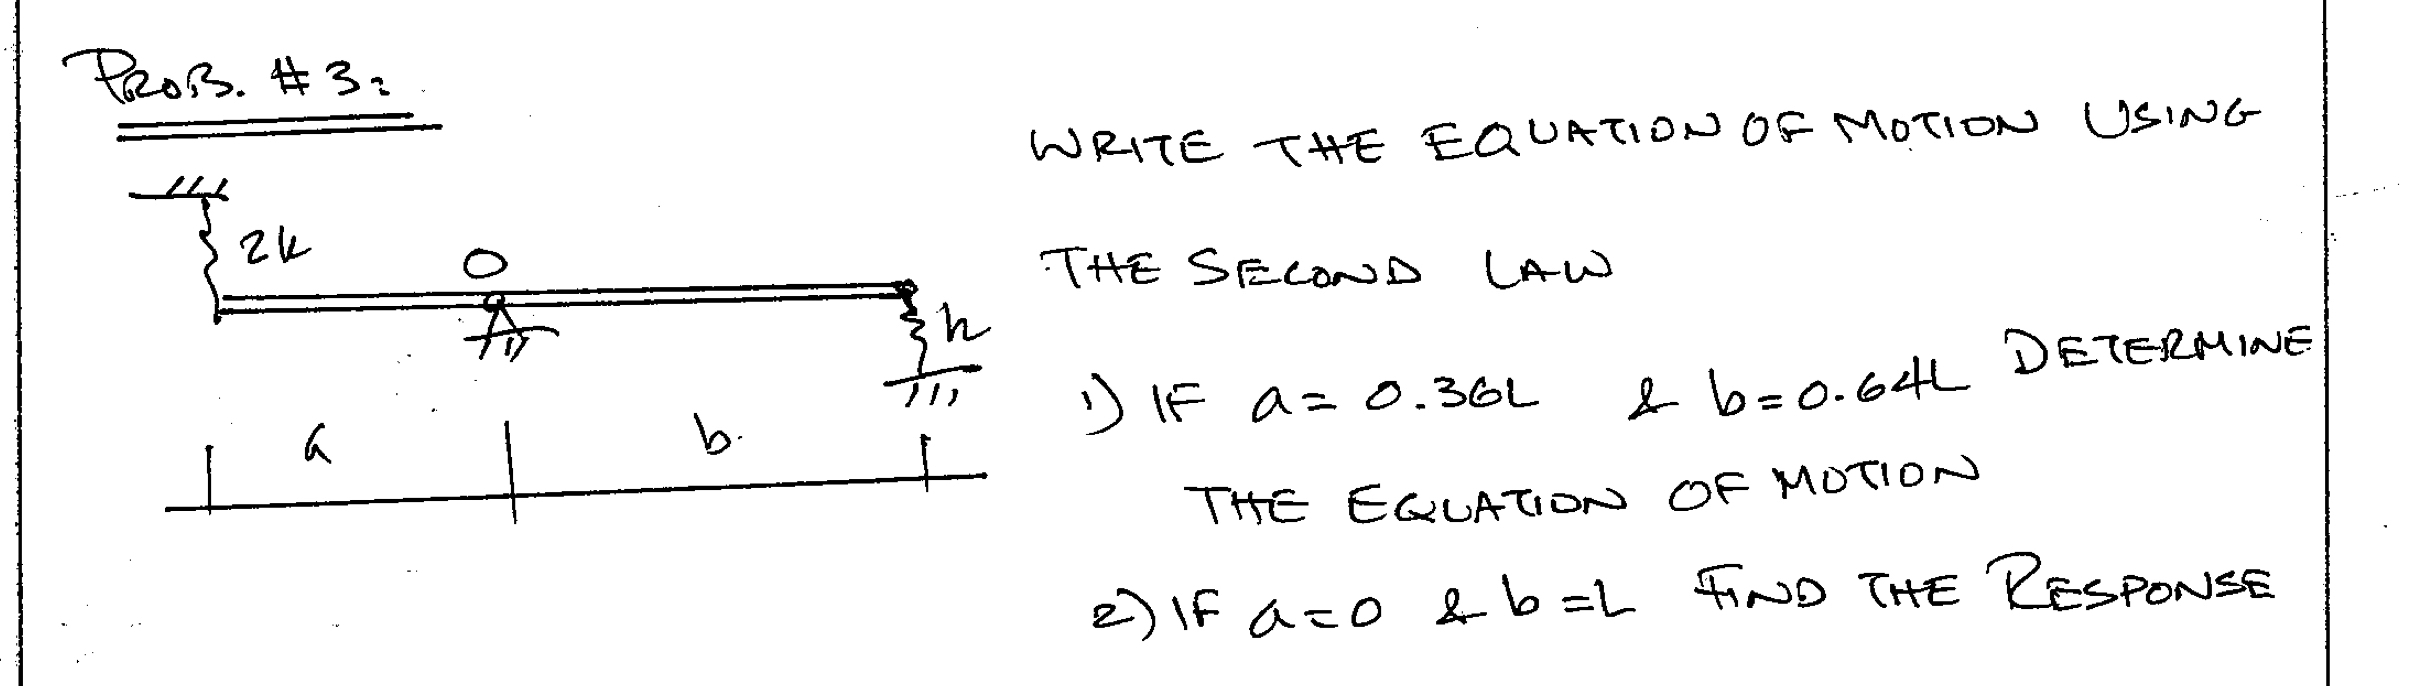 PROB. #3:
WRITE THE EQUATION OF MOTION USING
2k
O
THE SECOND LAW
k
1) IF a = 0.36L & b = 0.64L DETERMINE
a b
THE EQUATION OF MOTION
2) IF a = 0 & b = L FIND THE RESPONSE